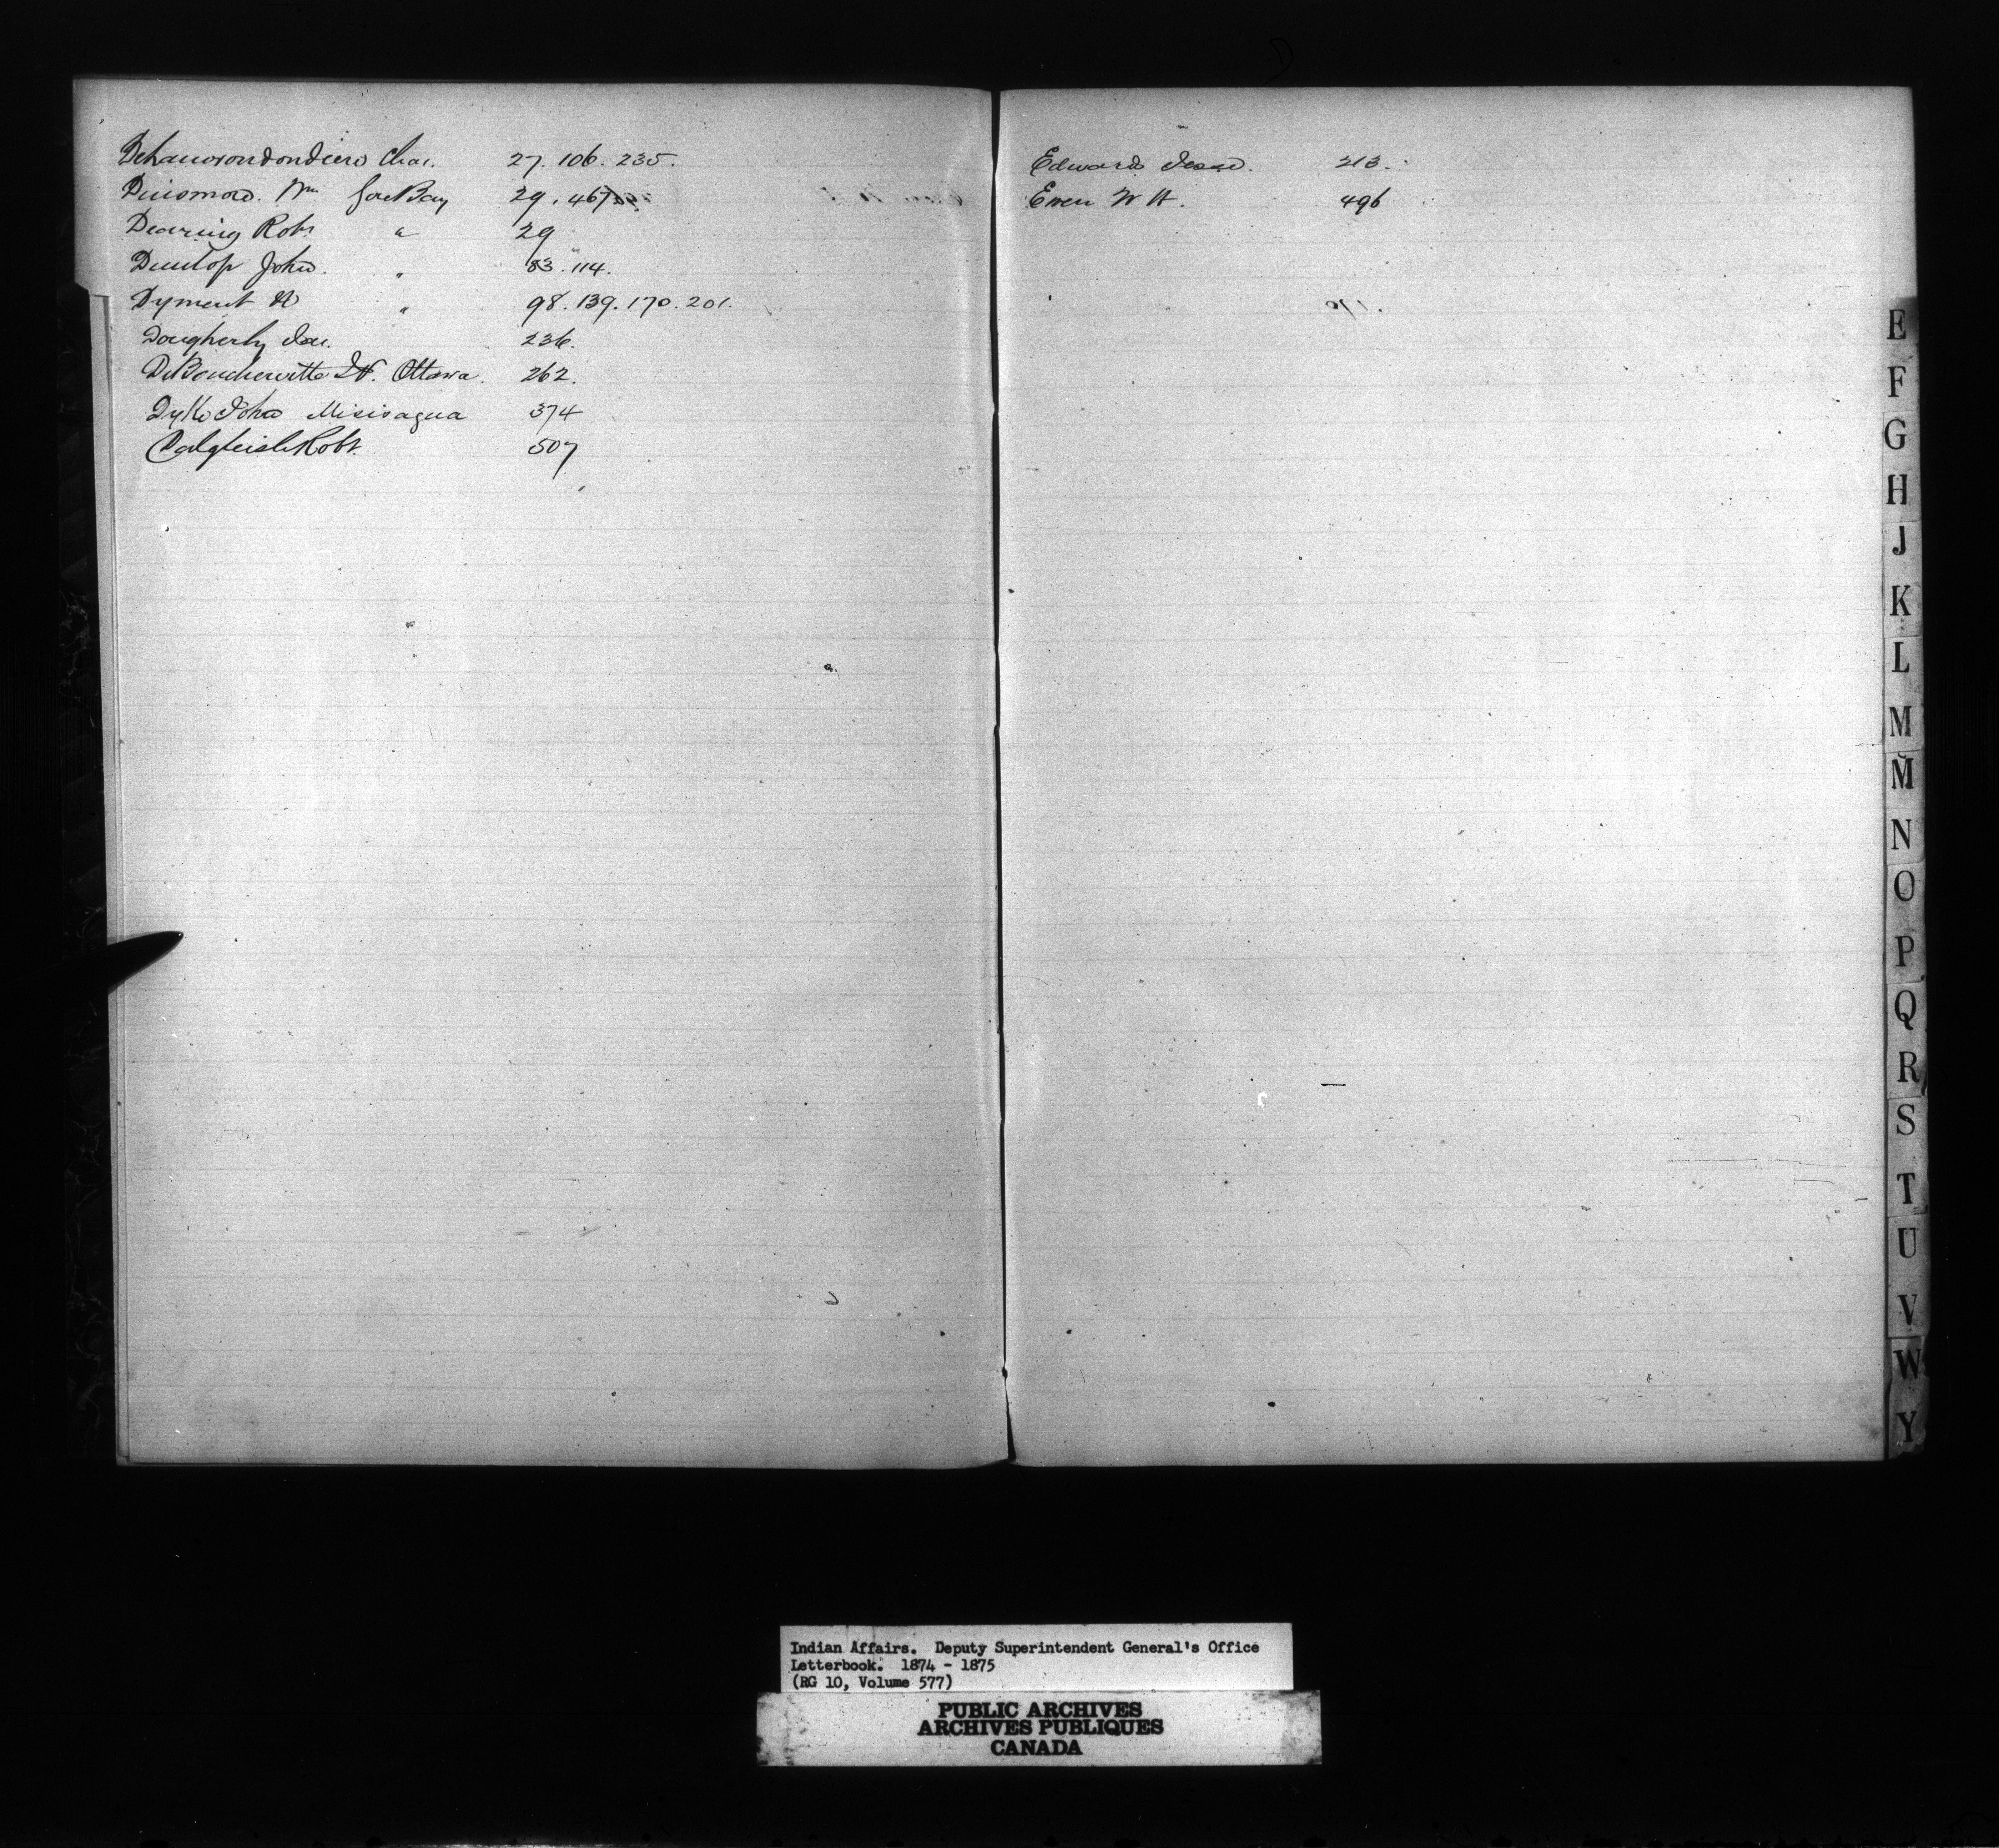 Chas. 27. 106. 235.
Dinsmore. Wm Gore Bay 29. 467
Dearing Robt " 29
Dunlop John. " 83. 114.
Dyment N " 98. 139. 170. 201.
Dougherty Jas. 236.
DeBoucherville Ottawa. 262.
Dyke John Missisagua 374
Dalgleish Robt. 507
Edwards Jesse. 213.
Ewen W H. 496
E
F
G
H
J
K
L
M
M̆
N
O
P
Q
R
S
T
U
V
W
Y
Indian Affairs. Deputy Superintendent General's Office
Letterbook. 1874 - 1875
(RG 10, Volume 577)
PUBLIC ARCHIVES
ARCHIVES PUBLIQUES
CANADA